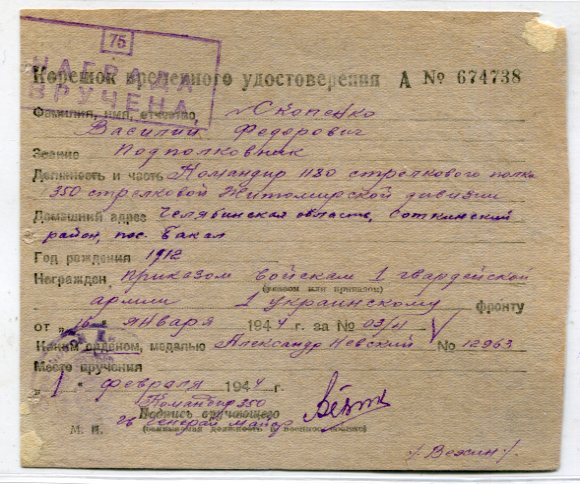 75
НАГРАДА
ВРУЧЕНА
Корешок временного удостоверения А № 674738
Фамилия, имя, отчество Скопенко
Василий Федорович
Звание Подполковник
Должность и часть Командир 1180 стрелкового полка
350 стрелковой Житомирской дивизии
Домашний адрес Челябинская область, Соткинский
район, пос. Бакал
Год рождения 1912
Награжден приказом войскам 1 гвардейской
(указом или приказом)
армии 1 украинскому фронту
от „16 января 1944 г. за № 03/н
Каким орденом, медалью Александр Невский № 12963
Место вручения
„1" февраля 1944 г.
Командир 350
Подпись вручающего
гв генерал майор
М. П. (занимаемая должность и военное звание)
/Вехин/.